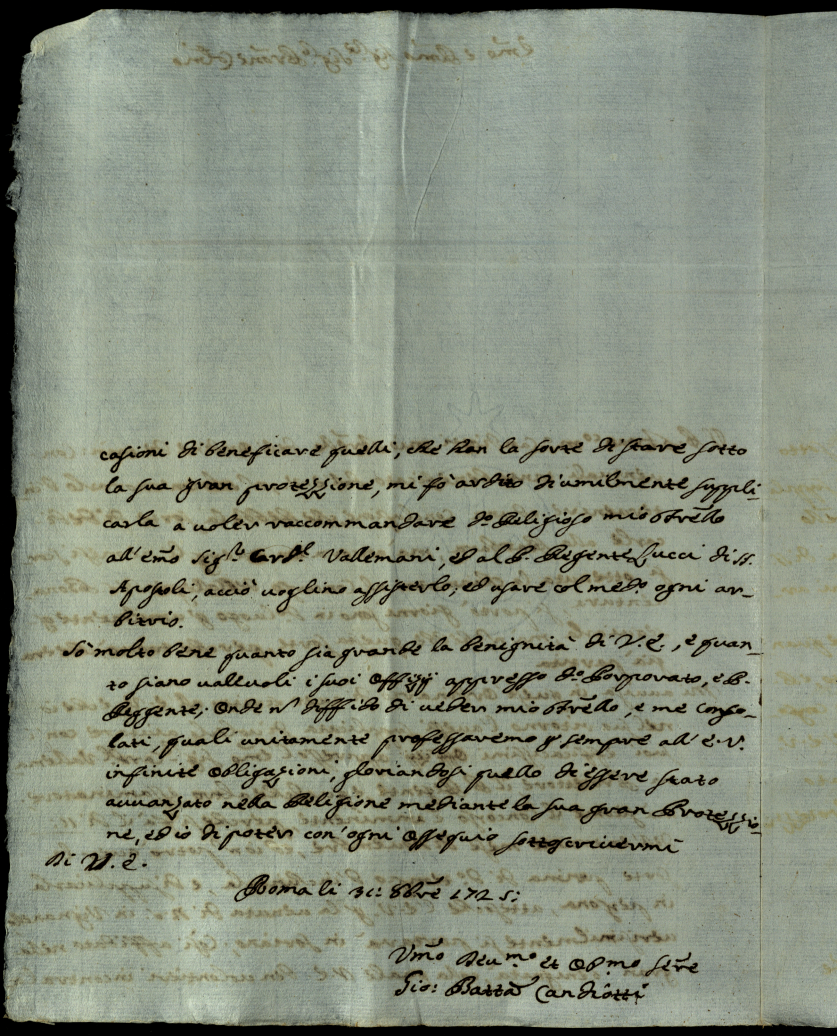 casioni di beneficare quelli, che han la sorte di stare sotto
la sua gran protezzione, mi fò ardito di umilmente suppli-
carla a voler raccommandare do. Religioso mio frẽllo
all'emõ Sigr. Cardl. Vallemani, ed al P. Regente Lucci di SS.
Apostoli, acciò voglino assisterlo, ed usare col medo. ogni ar-
bitrio.
Sò molto bene quanto sia grande la benignità di V. E., e quan-
to siano vallevoli i suoi Offizij appresso do. Porporato, e P.
Reggente; Onde nõ diffido di veder mio frẽllo, e me conso-
lati, quali unitamente professaremo p sempre all'E. V.
infinite Obligazioni, gloriandosi quello di essere stato
avvanzato nella Religione mediante la sua gran Protezzio-
ne, ed io di poter con ogni Ossequio sottoscrivermi
Di V. E.
Roma li 31: 8brẽ 1725:
Vmõ Deumo et Obmo serẽ
Gio: Batta Candiotti